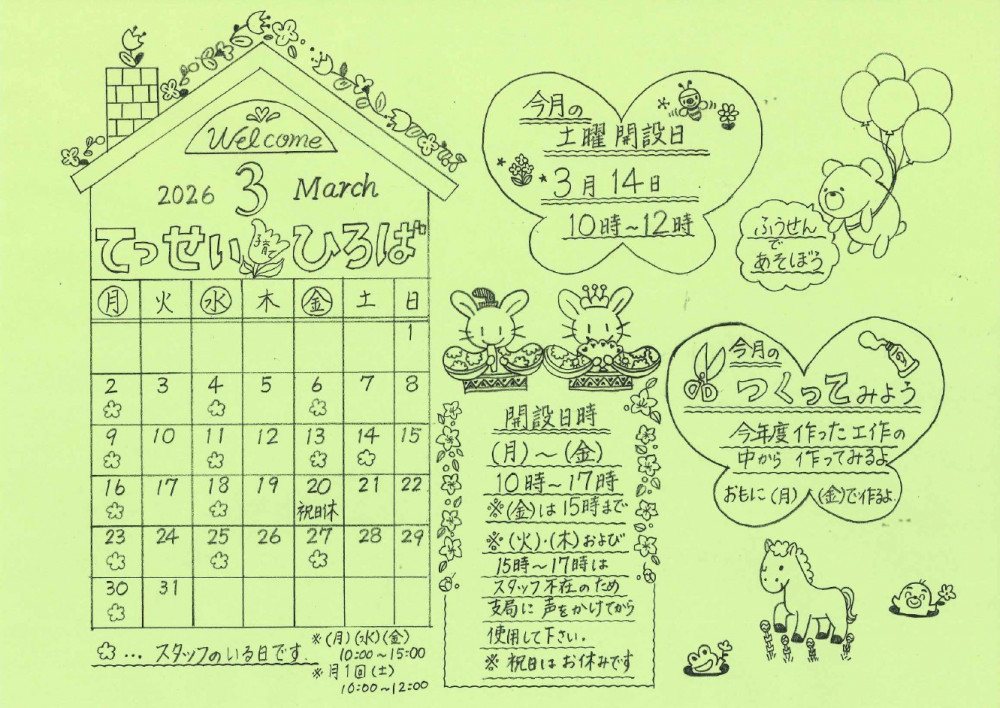 Welcome
2026 3 March
てっせい子育ひろば
月 火 水 木 金 土 日
1
2 3 4 5 6 7 8
9 10 11 12 13 14 15
16 17 18 19 20 21 22
祝日休
23 24 25 26 27 28 29
30 31
… スタッフのいる日です.
※(月)(水)(金)
10:00～15:00
※月1回(土)
10:00～12:00
今月の
土曜開設日
3月14日
10時～12時
ふうせん
で
あそぼう
開設日時
(月)～(金)
10時～17時
※(金)は15時まで
※(火)・(木)および
15時～17時は
スタッフ不在のため
支局に声をかけてから
使用して下さい.
※祝日はお休みです
今月の
つくってみよう
今年度作った工作の
中から作ってみるよ
おもに(月)(金)で作るよ.